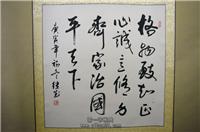 格物致知正
心誠意修身
齊家治國
平天下
庚寅年初冬